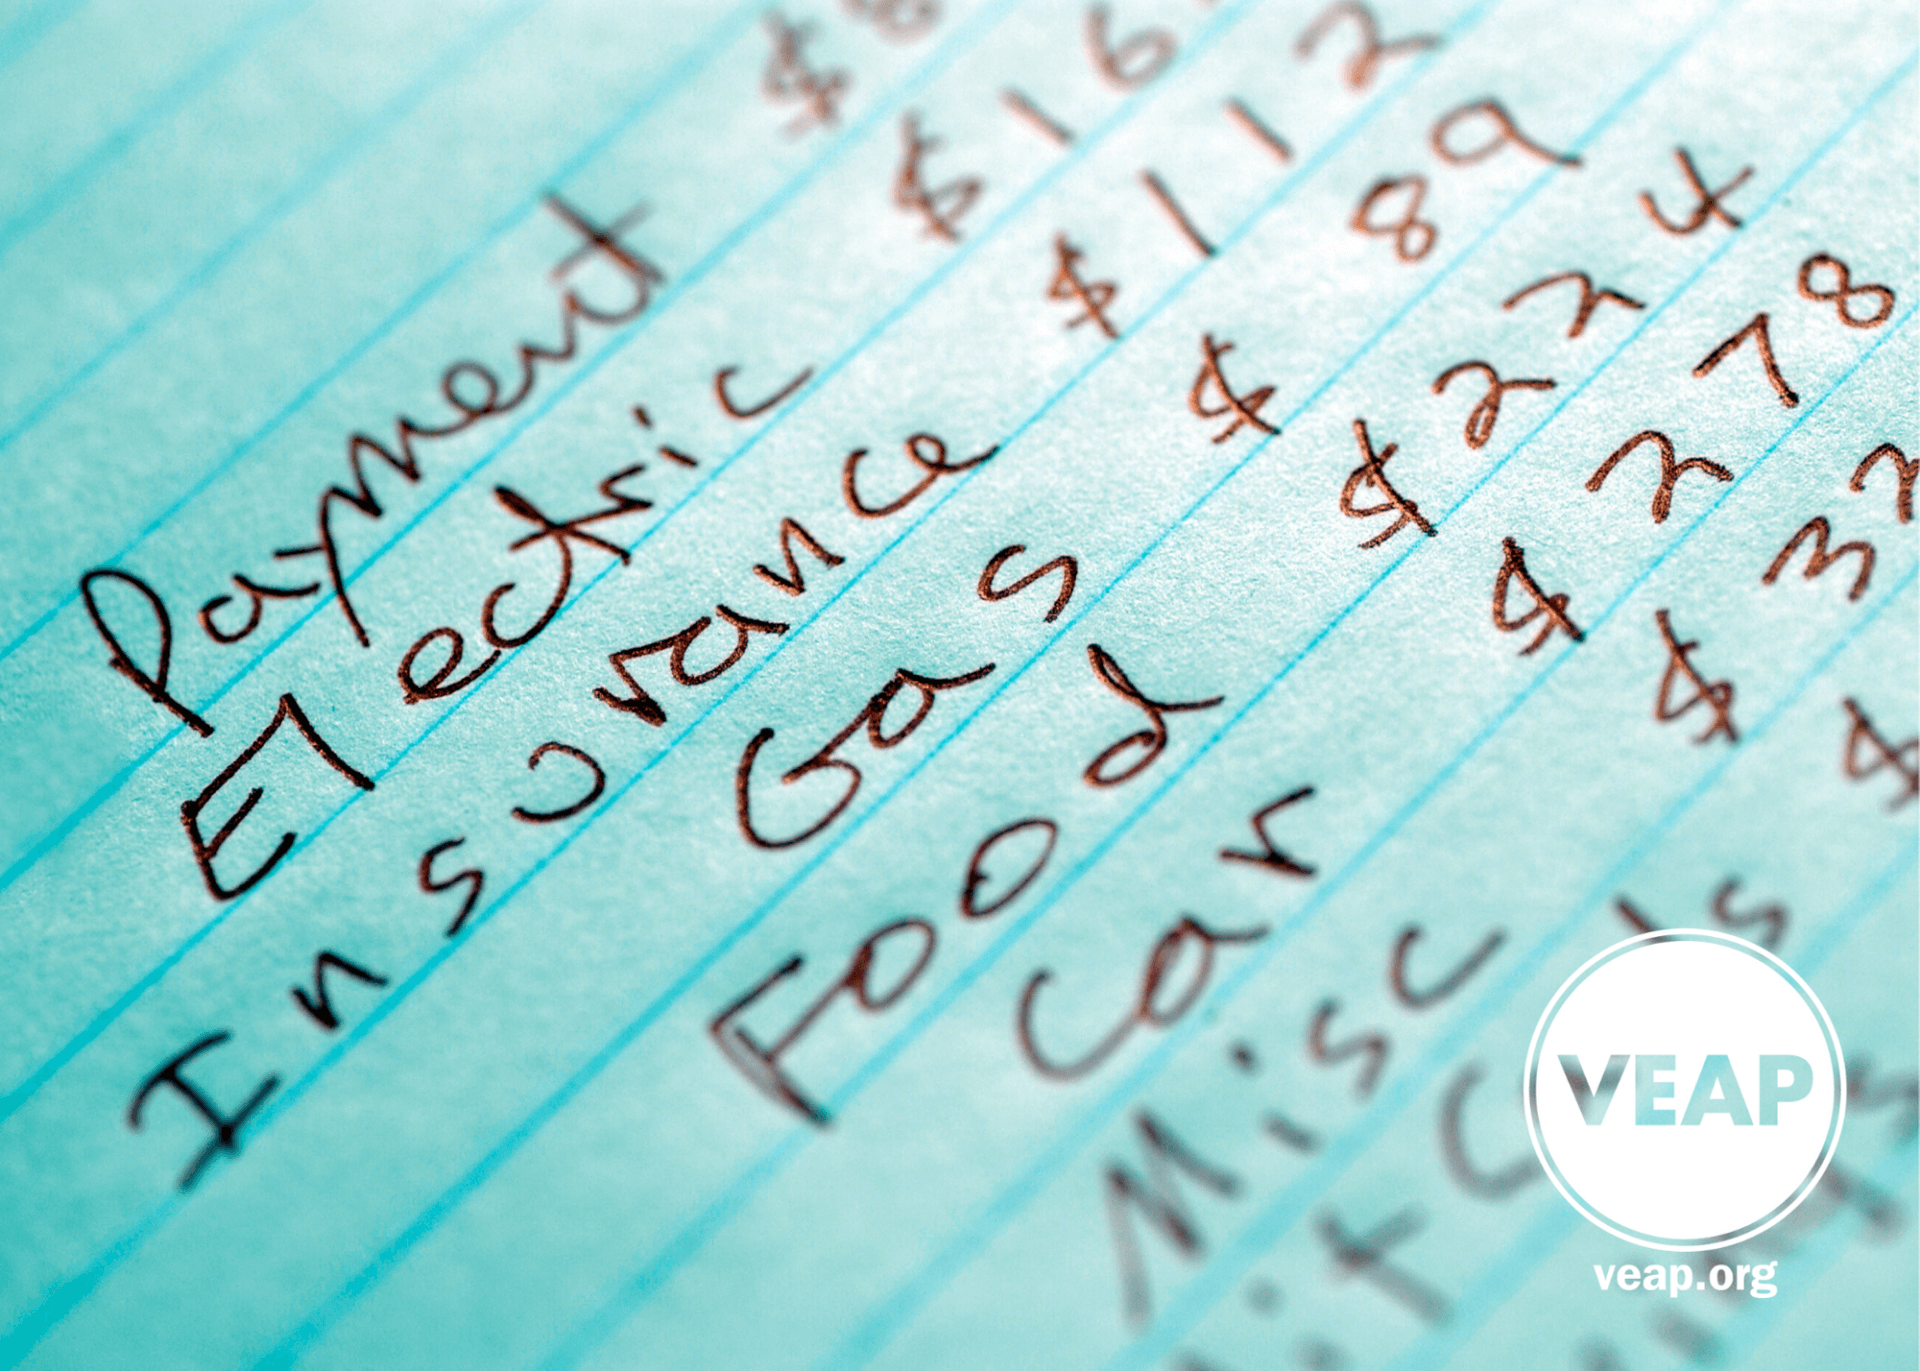 Payment $8
Electric $16
Insurance $112
Gas $89
Food $224
Car $278
Misc $3
$
VEAP
veap.org